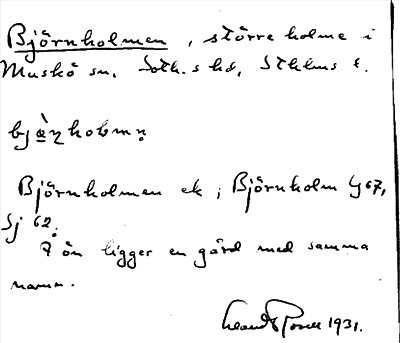 Björnholmen, större holme i
Muskö sn, Soth.s hd, Sthlms l.
Björnholmen ek; Björnholm Gj 67,
Sj 62.
På ön ligger en gård med samma
namn.
1931.